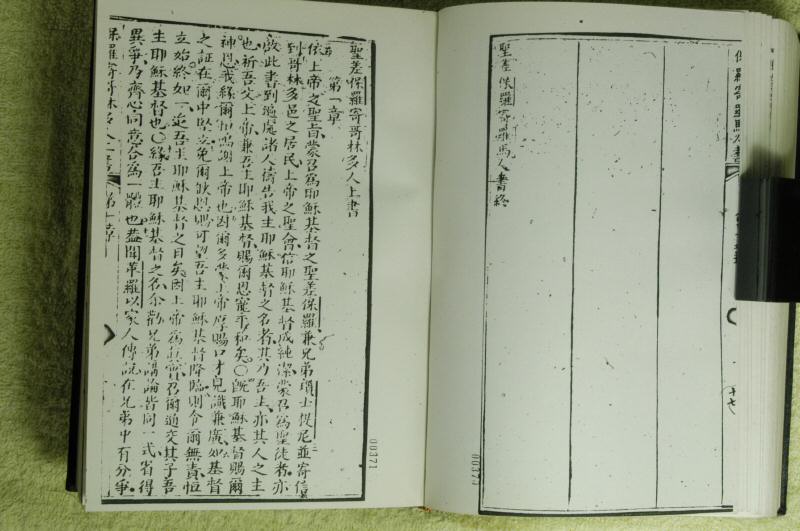 聖差保羅寄羅馬人書終
00371
聖差保羅寄哥林多人上書
第一章
依上帝之聖旨蒙召爲耶穌基督之聖差保羅兼兄弟 士提尼並寄信
到哥林多邑之居民上帝之聖會信耶穌基督成純潔蒙召爲聖徒者亦
啟此書到 處諸人禱告我主耶穌基督之名者其乃吾主亦其人之主
也祈吾父上帝兼吾主耶穌基督賜爾恩寵平和矣〇 耶穌基督賜爾
神恩我緣爾 謝上帝也因爾多蒙上帝厚賜口才見識兼廣如基督
之証在爾中堅立免爾 恩賜可望吾主耶穌基督降臨則令爾無責恒
立始終如一 吾主耶穌基督之日矣因上帝爲真實召爾通交其子吾
主耶穌基督也〇緣吾主耶穌基督之名余勸兄弟講論皆同一式省得
異爭乃齊心同意合爲一體也蓋聞革羅以家人傳說在兄弟中有分爭
保羅寄哥林多人 書 第 章
00371